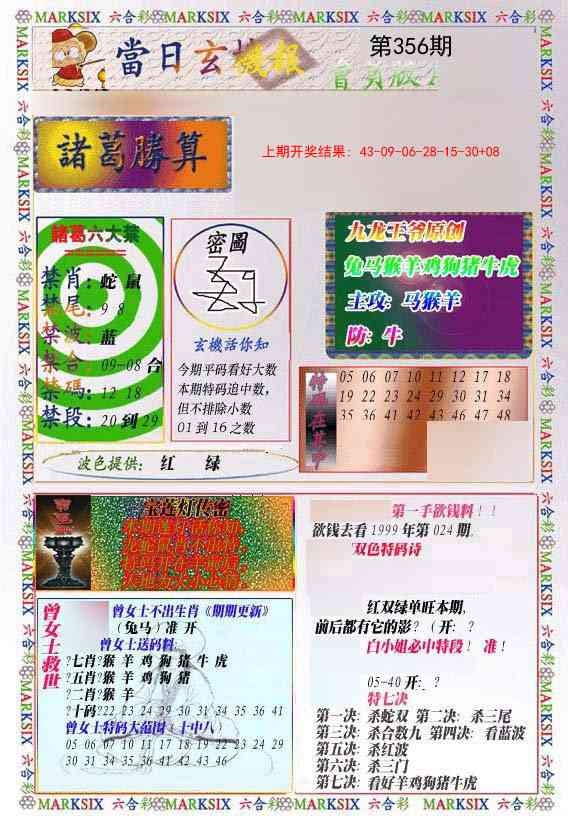 MARKSIX 六合彩 MARKSIX 六合彩 MARKSIX 六合彩 MARKSIX 六合彩 MARKSIX
當日玄機報
第356期
諸葛勝算
上期开奖结果：43-09-06-28-15-30+08
諸葛六大禁
禁肖：蛇 鼠
禁尾：9 8
禁波：蓝
禁合：09-08 合
禁碼：12 18
禁段：20 到 29
密圖
玄機活你知
今期平码看好大数
本期特码追中数，
但不排除小数
01 到 16 之数
九龙王爷原创
兔马猴羊鸡狗猪牛虎
主攻：马猴羊
防：牛
05 06 07 10 11 12 17 18
19 22 23 24 29 30 31 34
35 36 41 42 43 46 47 48
波色提供： 红 绿
宝莲灯传密
曾女士救世
曾女士不出生肖《期期更新》
（兔马）准 开
曾女士送码料:
?七肖?猴 羊 鸡 狗 猪 牛 虎
?五肖?猴 羊 鸡 狗 猪
?二肖?猴 羊
?十码?22 23 24 29 30 31 34 35 36 41
曾女士特码大范围（十中八）
05 06 07 10 11 17 18 19 22 23 24 29
30 31 34 35 36 41 42 43 46
第一手欲钱料！！
欲钱去看 1999 年第 024 期。
双色特码诗
红双绿单旺本期，
前后都有它的影？（开：？
白小姐必中特段！ 准！
05-40 开:？
特七决
第一决：杀蛇双 第二决：杀三尾
第三决：杀合数九 第四决：看蓝波
第五决：杀红波
第六决：杀三门
第七决：看好羊鸡狗猪牛虎
MARKSIX 六合彩 MARKSIX 六合彩 MARKSIX 六合彩 MARKSIX 六合彩 MARKSIX